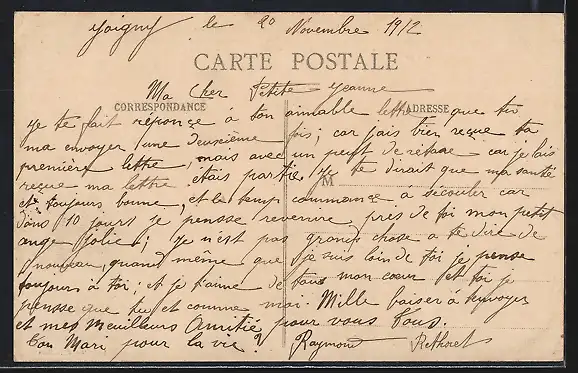 Joigny le 20 Novembre 1912
CARTE POSTALE
Ma Cher Petite Jeanne
CORRESPONDANCE
ADRESSE
Je te fait réponçe à ton aimable lettre que tu
ma envoyer une deusxième fois; car jais bien reçue ta
première lettre, mais avec un peut de retare car je lais
reçue ma lettre étais partie. Je te dirait que ma santé
M
est toujours bonne, et le temp commance à découler car
dans 10 jours je pensse revenire près de toi mon petit
ange jolie; Je n'est pas grand chose a te dire de
nouveau quand même que je suis loin de toi je pense
toujours à toi; et je t'aime de tous mon cœur et toi je
pensse que tu et comme moi. Mille baiser à envoyer
et mes Meuilleurs Amitié pour vous Tous.
Ton Mari pour la vie? Raymond